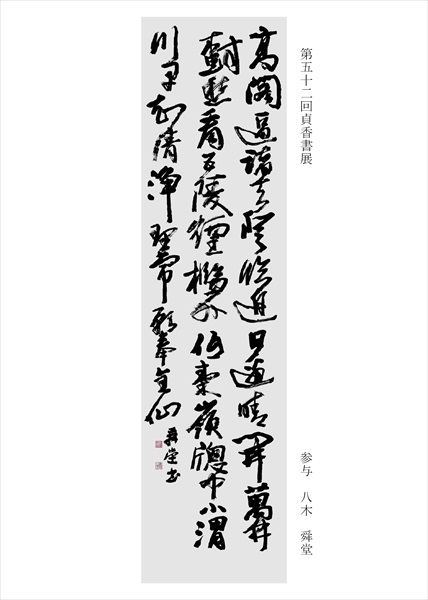 第五十二回貞香書展
参与 八木 舜堂
高閣逼諸天登臨近日邊晴開萬井
樹愁看五陵煙檻外低秦嶺牕中小渭
川早知清浄理常願奉金仙 舜堂書